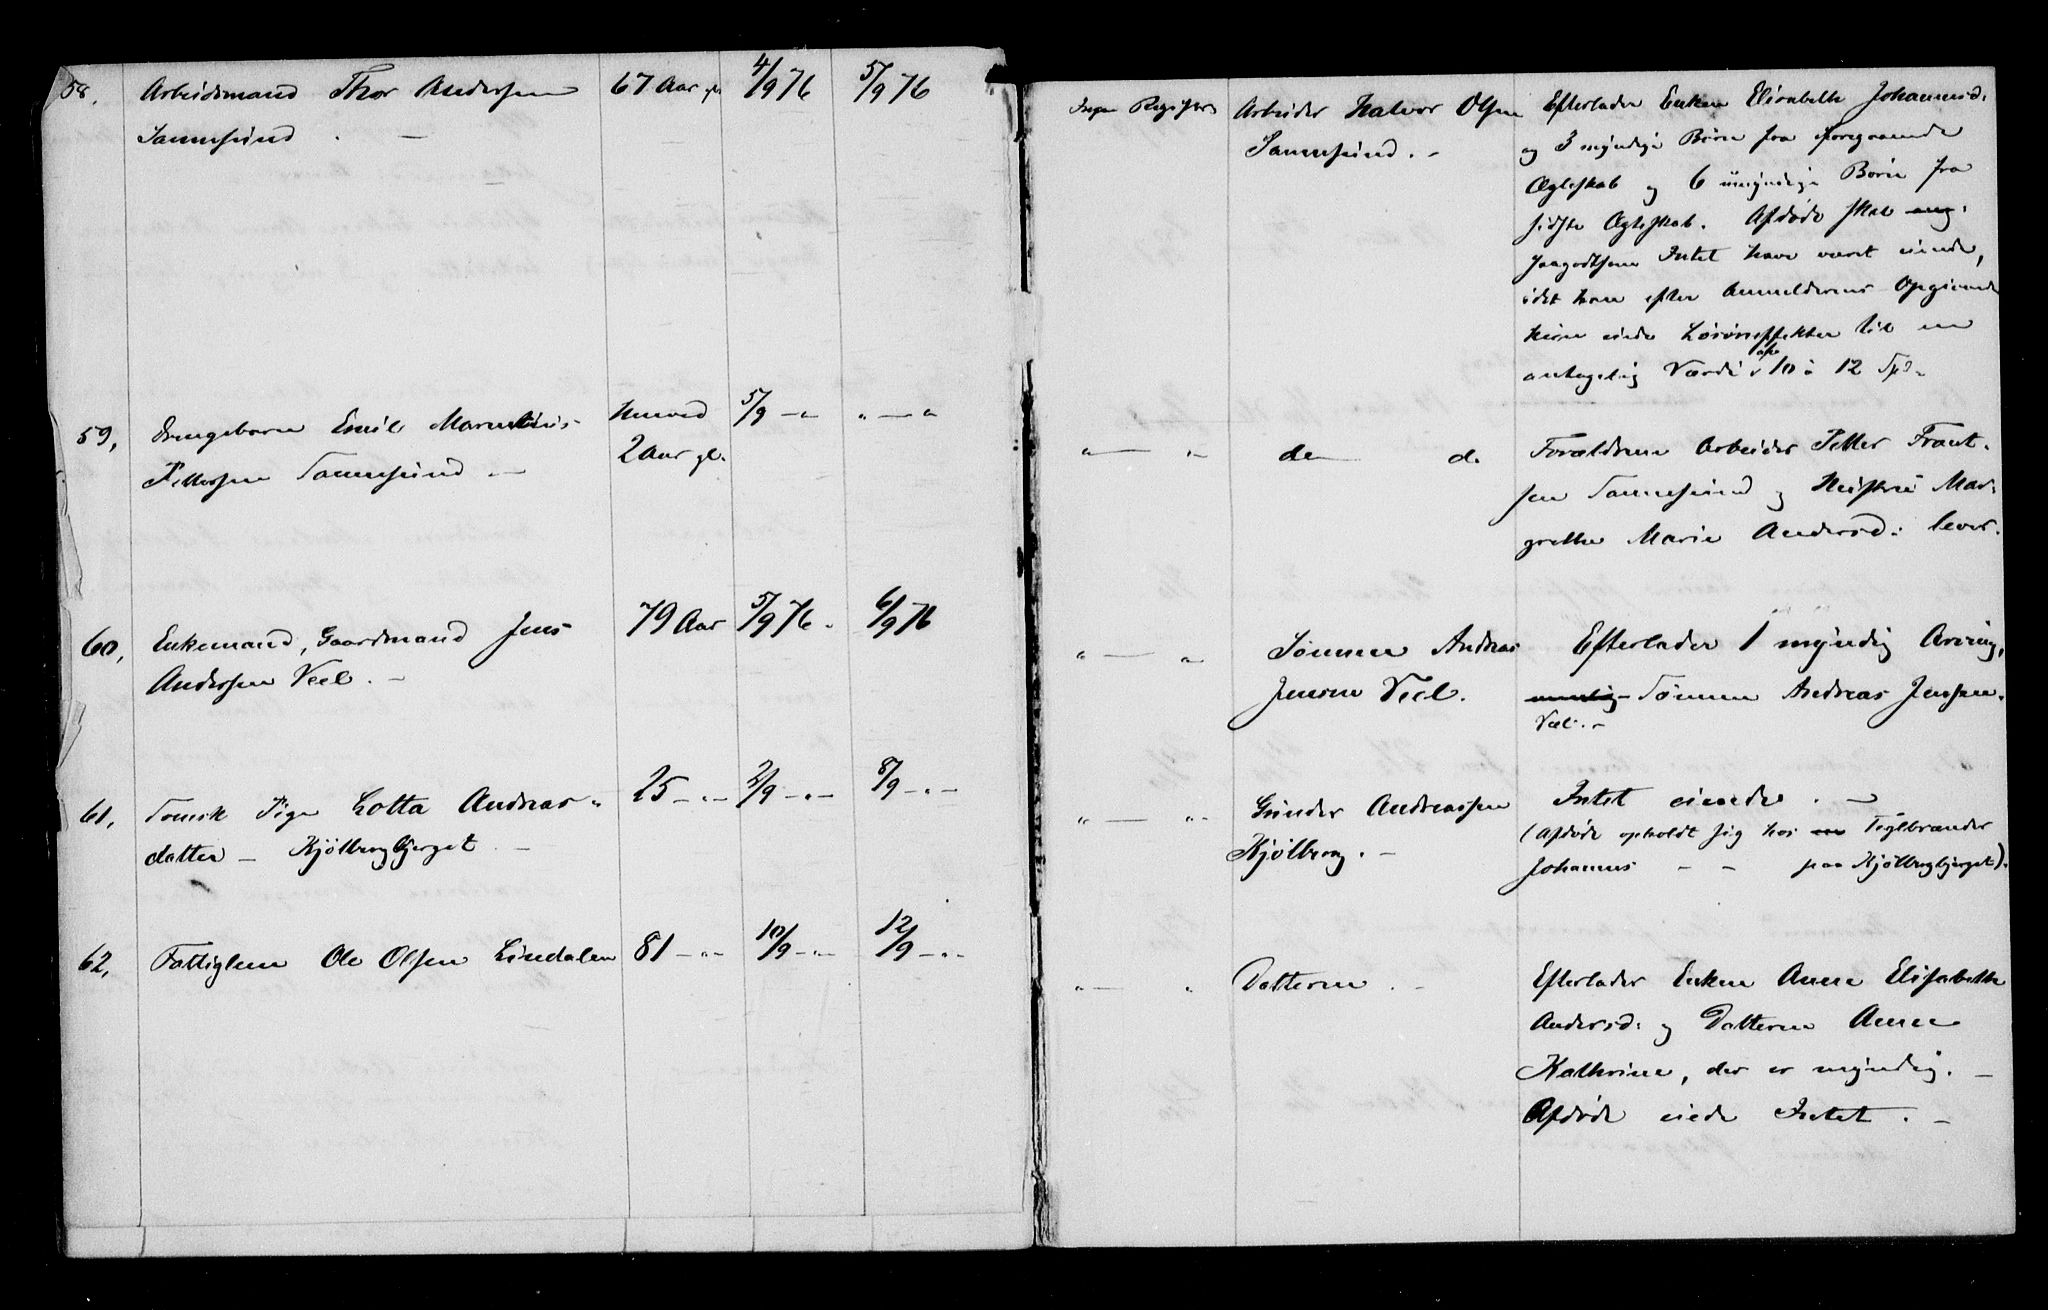 58. Arbeidsmand Thor Andersen 67 Aar gl. 4/9 76 5/9 76
Sannesund. —
Ingen Registr. Arbeider Halvor Olsen
Sannesund. -
Efterlader Enken Elisabeth Johannesd:
og 3 myndige Børn fra foregaaende
Ægteskab og 6 umyndige Børn fra
sidste Ægteskab. Afdøde skal
saagodtsom Intet have været eiende,
idet han efter Anmelderens Opgivende
kun eiede Løsøreeffekter til en
antagelig Værdi af 10 à 12 Spd.
59, Drengebarn Emil Marentius Henved 5/9 — " " — "
Pettersen Sannesund — 2 Aar gl.
" — " do d.
Forældrene Arbeider Petter Frant-
sen Sannesund og Hustru Mar-
grethe Marie Andersd: lever.
60, Enkemand, Gaardmand Jens 79 Aar 5/9 76. 6/9 76
Andersen Veel. —
" — " Sønnen Andreas
Jensen Veel.
Efterlader 1 myndig Arving,
Sønnen Andreas Jensen
Veel. -
61, Svensk Pige Lotta Andreas- 25 — " — 2/9 — " — 8/9 — " —
datter — Kjølbergbjerget. —
" — " Gunder Andreassen
Kjølberg. —
Intet eiende. —
(Afdøde opholdt sig hos Teglbrænder
Johannes — — paa Kjølbergbjerget).
62, Fattiglem Ole Olsen Lindalen 81 — " — 10/9 — " — 12/9 — " —
" — " Datteren. -
Efterlader Enken Anne Elisabeth
Andersd: og Datteren Anne
Kathrine, der er myndig. —
Afdøde eiede Intet. —